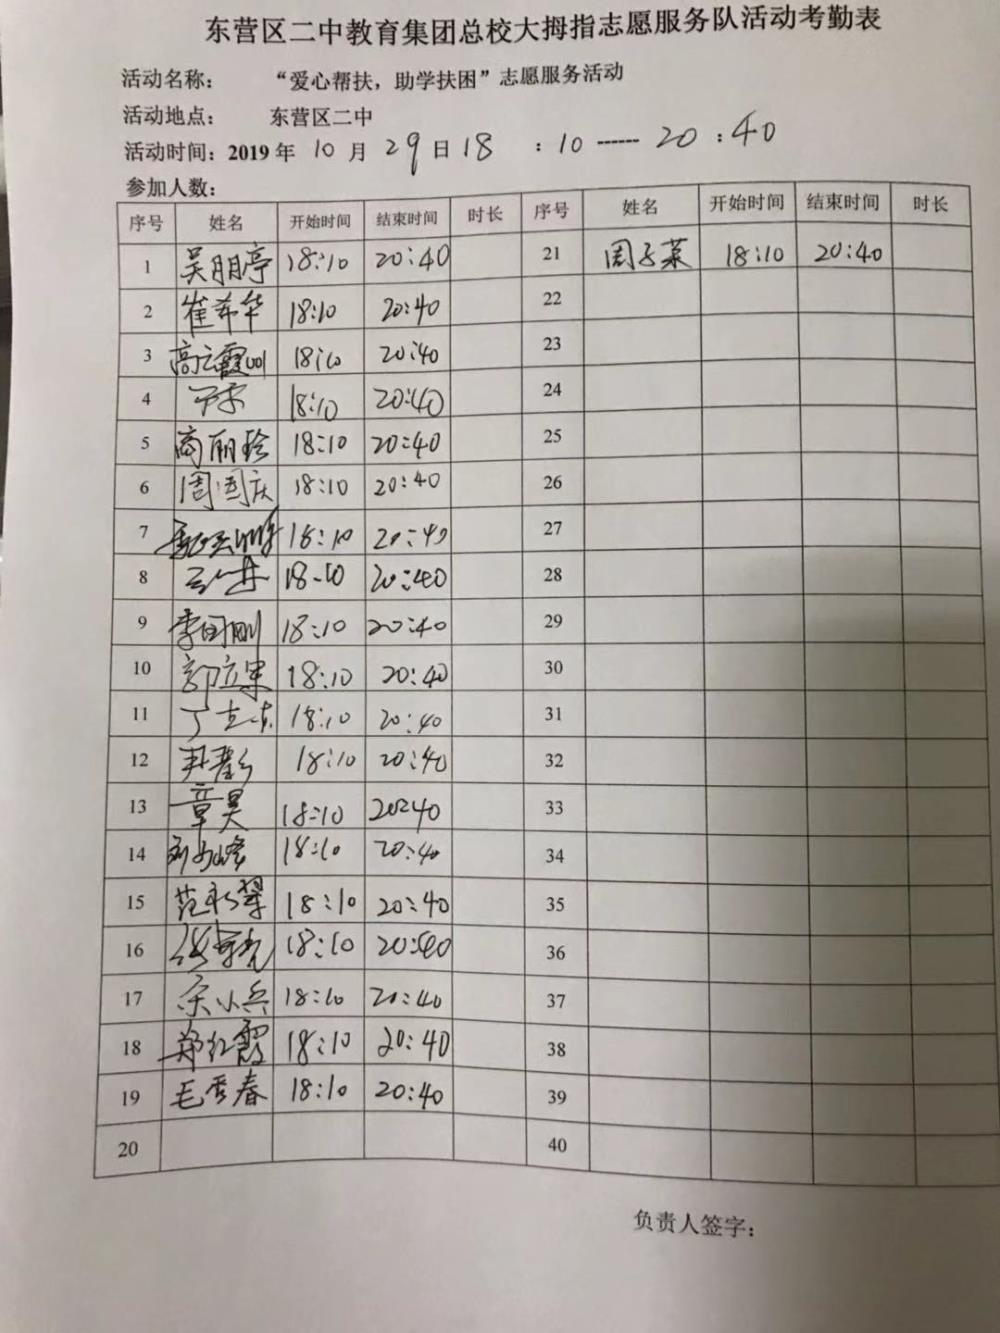 东营区二中教育集团总校大拇指志愿服务队活动考勤表
活动名称： “爱心帮扶，助学扶困”志愿服务活动
活动地点： 东营区二中
活动时间：2019 年 10 月 29 日 18 ：10 ------ 20 ：40
参加人数：
序号 姓名 开始时间 结束时间 时长 序号 姓名 开始时间 结束时间 时长
1 吴朋亭 18:10 20:40 21 周子菜 18:10 20:40
2 崔希华 18:10 20:40 22
3 高云霞 18:10 20:40 23
4 18:10 20:40 24
5 商丽珍 18:10 20:40 25
6 周国庆 18:10 20:40 26
7 18:10 20:40 27
8 18:10 20:40 28
9 李国刚 18:10 20:40 29
10 郭立果 18:10 20:40 30
11 18:10 20:40 31
12 18:10 20:40 32
13 章昊 18:10 20:40 33
14 18:10 20:40 34
15 范新翠 18:10 20:40 35
16 18:10 20:40 36
17 宋小兵 18:10 20:40 37
18 郑红霞 18:10 20:40 38
19 毛秀春 18:10 20:40 39
20 40
负责人签字：